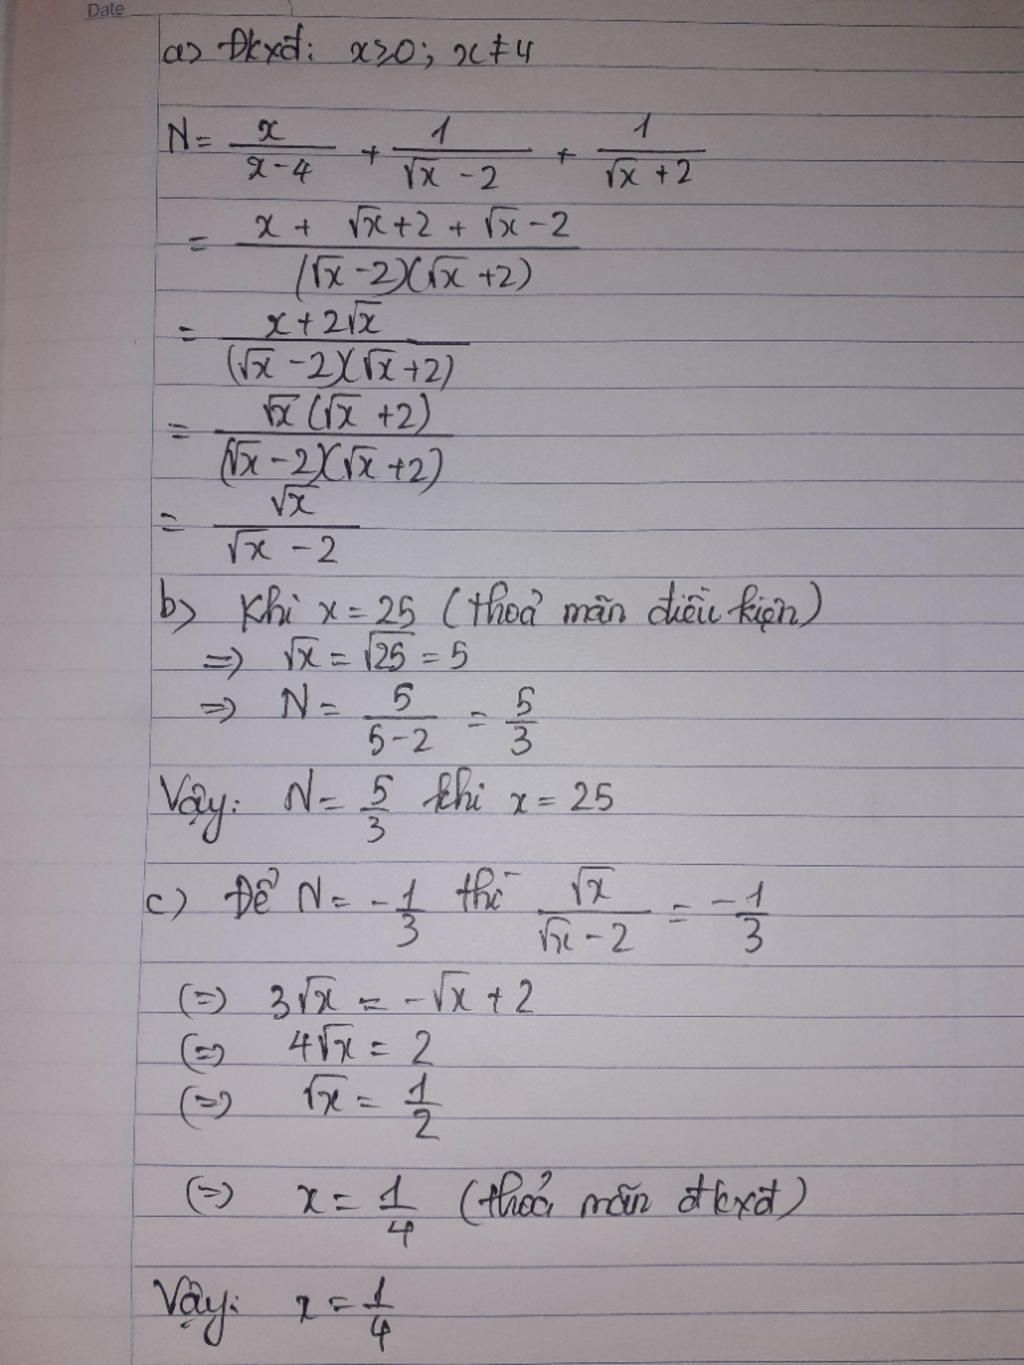 Date
a) Đkxđ: x≥0; x≠4
N = x/(x-4) + 1/(√x - 2) + 1/(√x + 2)
= (x + √x+2 + √x-2)/((√x-2)(√x+2))
= (x+2√x)/((√x-2)(√x+2))
= (√x(√x+2))/((√x-2)(√x+2))
= √x/(√x-2)
b) Khi x = 25 (thoả mãn điều kiện)
=> √x = √25 = 5
=> N = 5/(5-2) = 5/3
Vậy: N = 5/3 khi x = 25
c) Để N = -1/3 thì √x/(√x-2) = -1/3
(=) 3√x = -√x + 2
(=) 4√x = 2
(=) √x = 1/2
(=) x = 1/4 (thoả mãn đkxđ)
Vậy: x = 1/4